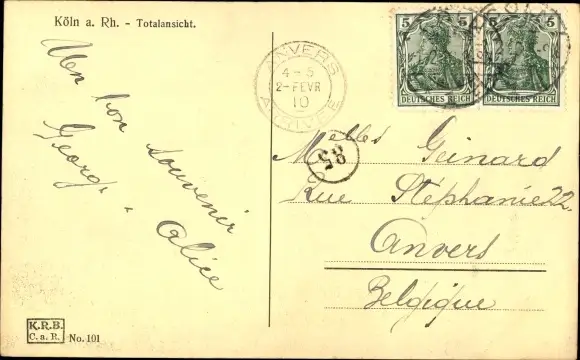 Köln a. Rh. - Totalansicht.
Un bon souvenir
Georg. - Alice
ANVERS
4-5
2-FEVR
10
ARRIVEE
5 5
DEUTSCHES REICH
5 5
DEUTSCHES REICH
85
Melles Geinard
Rue Stéphanie 22.
Anvers
Belgique
K.R.B.
C.a.R.
No. 101